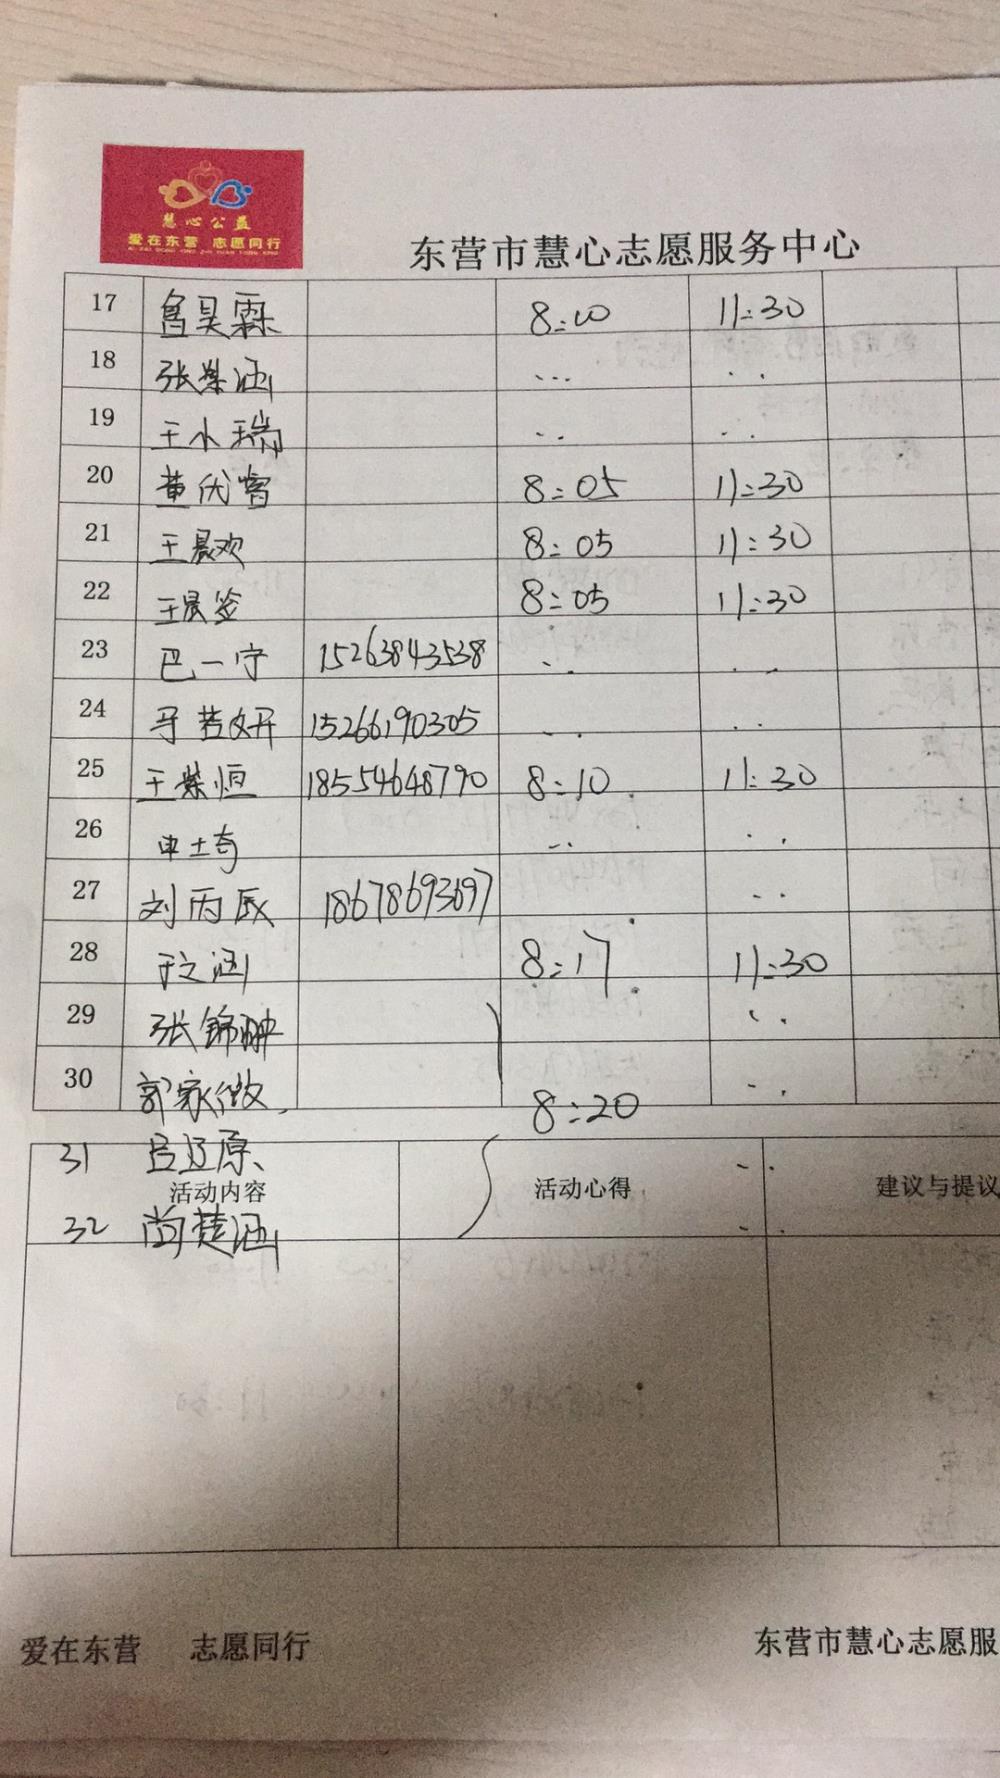 慧心公益
爱在东营 志愿同行
东营市慧心志愿服务中心
17 鲁昊霖 8:00 11:30
18 张荣涵 ... ..
19 王小瑞 .. ..
20 董优 8:05 11:30
21 王晨欢 8:05 11:30
22 王晨 8:05 11:30
23 巴一宁 15263843538 .. ..
24 若妍 15266190305 .. ..
25 王紫恒 18554648790 8:10 11:30
26 申士奇 .. ..
27 刘丙辰 18678693697 ..
28 于之涵 8:17 11:30
29 张锦翀 ..
30 郭家傲 8:20 ..
31 吕迎原 ..
活动内容 活动心得 建议与提议
32 尚楚涵 ..
爱在东营 志愿同行 东营市慧心志愿服